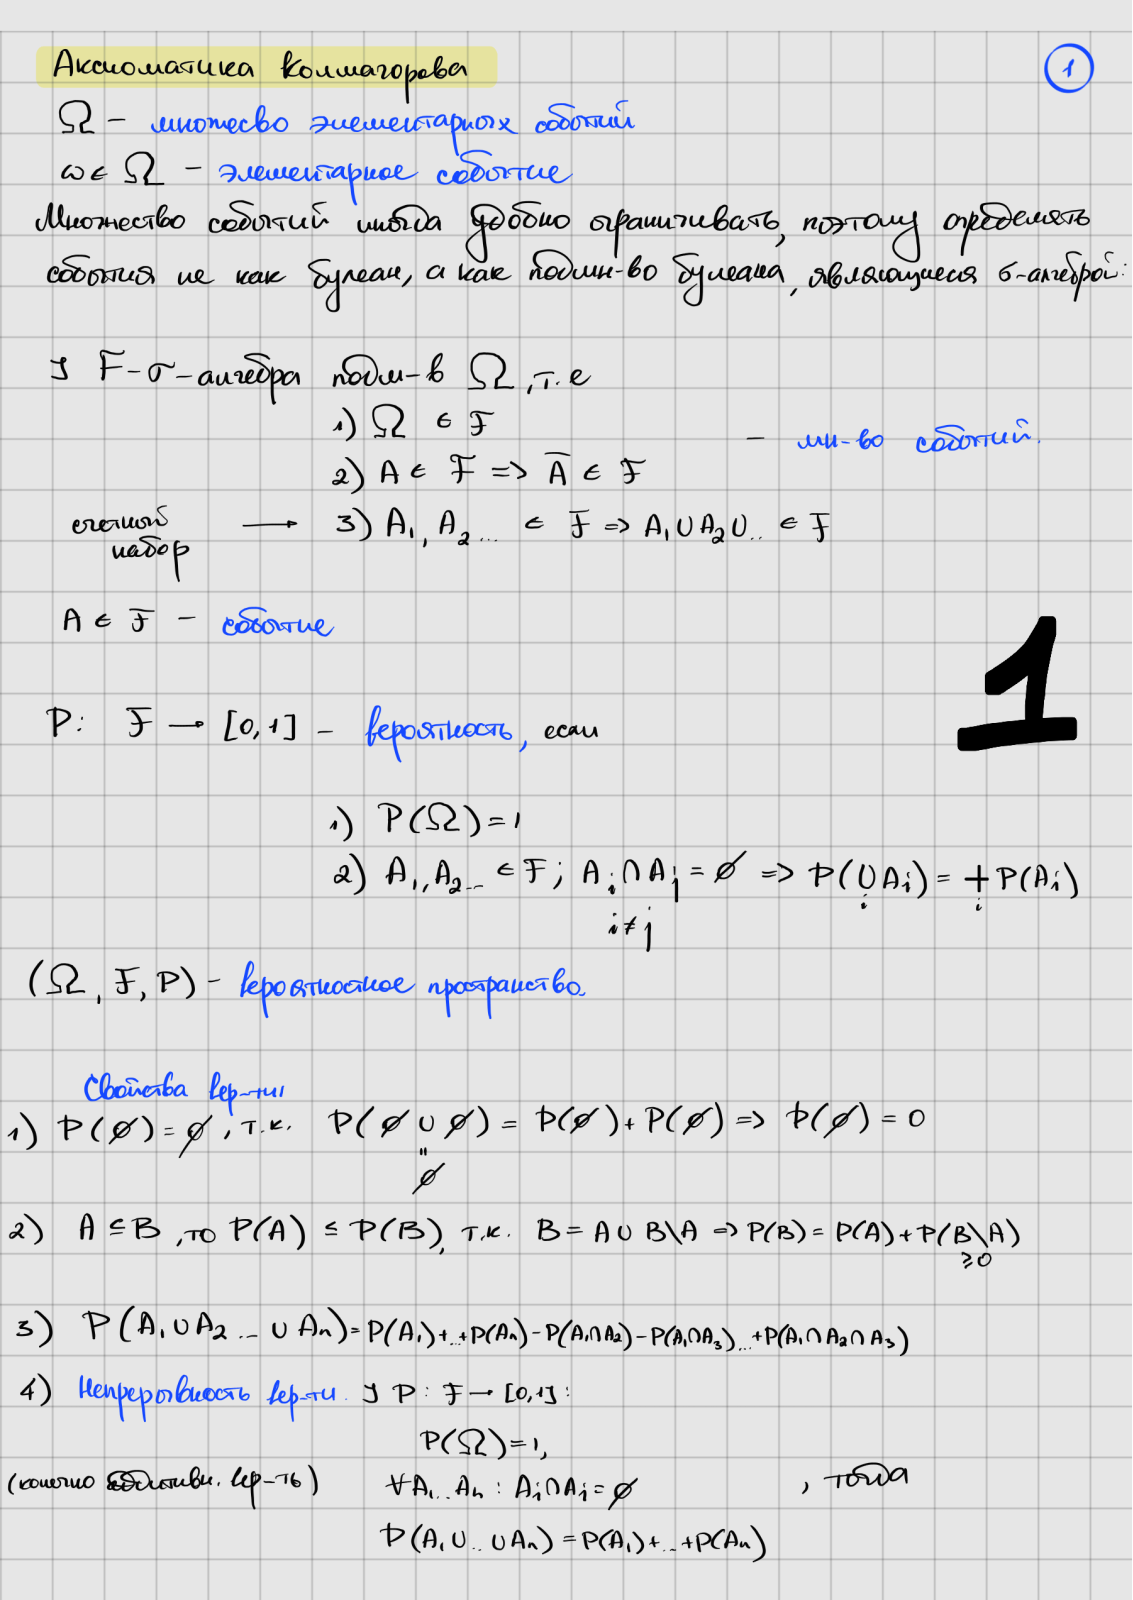 Аксиоматика Колмагорова
1
Ω – множесво элементарных событий
ω ∈ Ω – элементарное событие
Множество событий иногда удобно ограничивать, поэтому определять
события не как булеан, а как подмн-во булеана, являющиеся σ-алгеброй:
] F – σ – алгебра подм-в Ω, т.е
1) Ω ∈ F
– мн-во событий.
2) A ∈ F => A̅ ∈ F
счетный набор → 3) A₁, A₂... ∈ F => A₁ ∪ A₂ ∪ .. ∈ F
A ∈ F – событие
1
P: F → [0,1] – вероятность, если
1) P(Ω) = 1
2) A₁, A₂... ∈ F; A_i ∩ A_j = ∅ => P(∪ A_i) = + P(A_i)
i≠j i i
(Ω, F, P) – вероятностное пространство
Свойства вер-ти
1) P(∅) = ∅, т.к. P(∅ ∪ ∅) = P(∅) + P(∅) => P(∅) = 0
"
∅
2) A ⊆ B, то P(A) ≤ P(B), т.к. B = A ∪ B\A => P(B) = P(A) + P(B\A)
≥0
3) P(A₁ ∪ A₂ ... ∪ Aₙ) = P(A₁)+..+P(Aₙ) – P(A₁∩A₂) – P(A₁∩A₃)...+P(A₁∩A₂∩A₃)
4) Непрерывность вер-ти. ] P: F → [0,1]:
P(Ω) = 1,
(конечно аддитивн. вер-ть) ∀A₁...Aₙ : A_i ∩ A_j = ∅ , тогда
P(A₁ ∪ .. ∪ Aₙ) = P(A₁)+...+P(Aₙ)